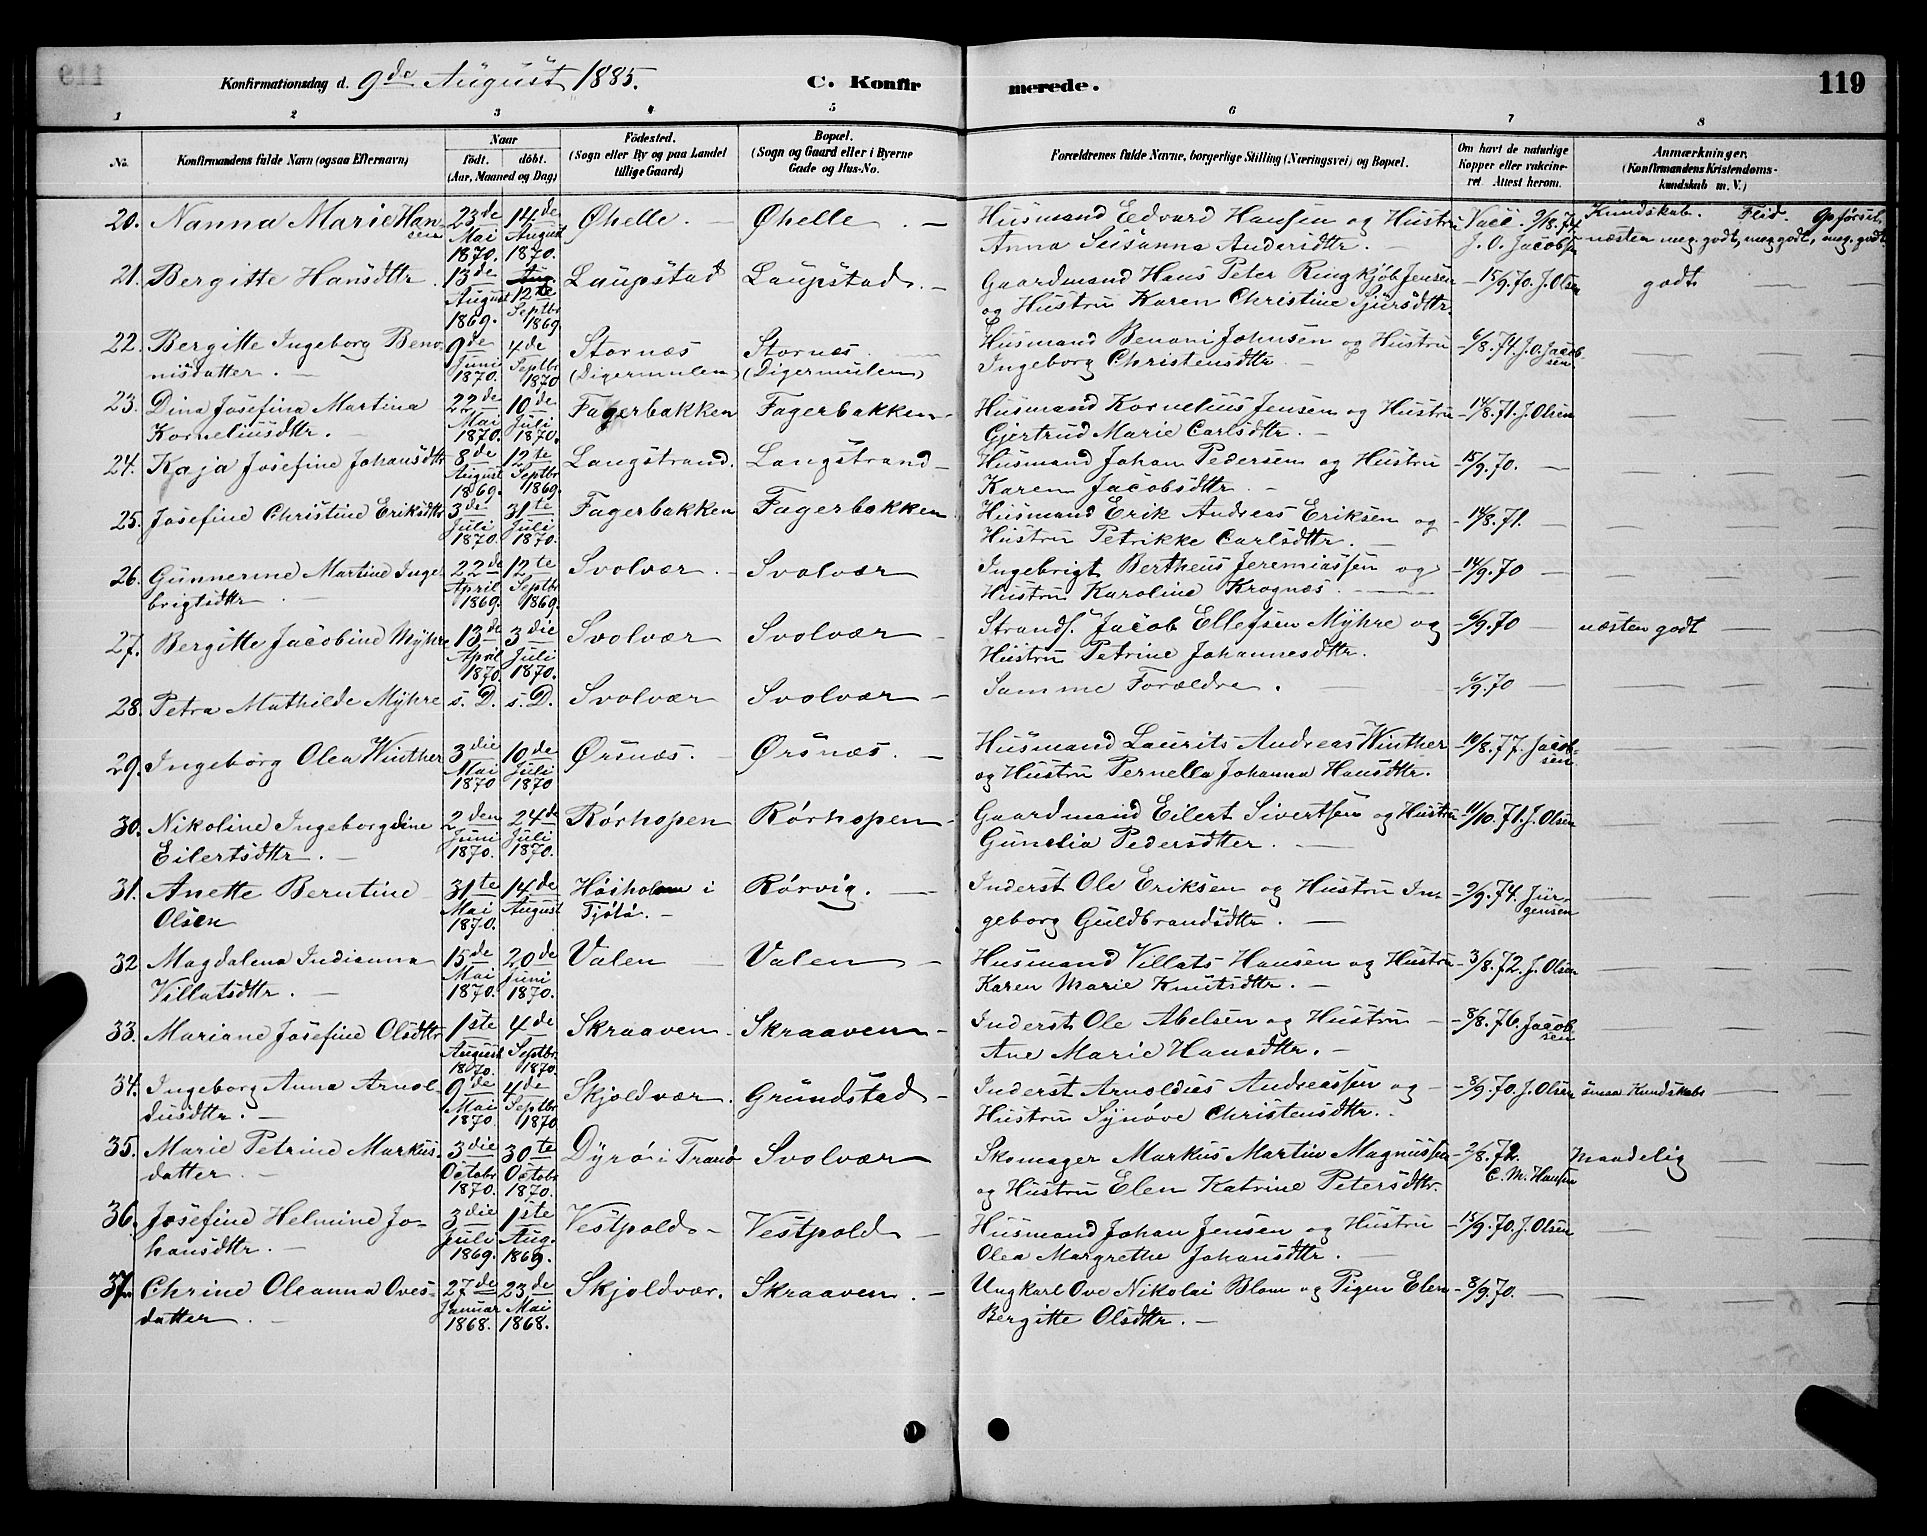 Konfirmationsdag d. 9de August 1885. C. Konfirmerede. 119
1 2 3 4 5 6 7 8
No. Konfirmandens fulde Navn (ogsaa Efternavn) Naar født. døbt. (Aar, Maaned og Dag) Fødested. (Sogn eller By og paa Landet tillige Gaard) Bopæl. (Sogn og Gaard eller i Byerne Gade og Hus-No. Forældrenes fulde Navne, borgerlige Stilling (Næringsvei) og Bopæl. Om havt de naturlige Kopper eller vakcineret. Attest herom. Anmærkninger. (Konfirmandens Kristendomskundskab m. V.)
20. Nanna Marie Hansen 23de Mai 1870. 14de August 1870. Øhelle. Øhelle. Husmand Edvard Hansen og Hustru Anna Susanna Andersdttr. Vacc. 9/8.74 J. O. Jacobsen Kundskab. Flid. Opførsel. næsten meg. godt, meg. godt, meg. godt.
21. Bergitte Hansdttr 13de August 1869. 12te Septbr 1869 Laupstad Laupstad. Gaardmand Hans Peter Ringkjøb Jensen og Hustru Karen Christine Sjursdttr. 15/9.70. J. Olsen godt
22. Bergitte Ingeborg Benonisdatter. 9de Juni 1870. 4de Septbr. 1870 Stornæs (Digermulen) Stornæs (Digermulen) Husmand Benoni Johnsen og Hustru Ingeborg Christensdttr. 6/8.74. J. O. Jacobsen
23. Dina Josefina Martina Korneliusdttr. 22de Mai 1870. 10de Juli 1870. Fagerbakken Fagerbakken Husmand Kornelius Jensen og Hustru Gjertrud Marie Carlsdttr. 14/8.71. J. Olsen
24. Kaja Josefine Johansdttr 8de August 1869. 12te Septbr 1869. Langstrand. Langstrand Husmand Johan Pedersen og Hustru Karen Jacobsdttr. 15/9.70.
25. Josefine Christine Eriksdttr 3de Juli 1870. 31te Juli 1870. Fagerbakken Fagerbakken Husmand Erik Andreas Eriksen og Hustru Petrikke Carlsdttr. 14/8.71.
26. Gunnerine Martine Ingebrigtsdttr 22de April 1869. 12te Septbr. 1869. Svolvær. Svolvær Ingebrigt Bertheus Jeremiassen og Hustru Karoline Krognæs. 14/9.70
27. Bergitte Jacobine Myhre 13de April 1870. 3die Juli 1870. Svolvær Svolvær Strands. Jacob Ellefsen Myhre og Hustru Petrine Johannesdttr. 6/9.70 næsten godt
28. Petra Mathilde Myhre s. D. s. D. Svolvær Svolvær Samme Forældre. 6/9.70
29. Ingeborg Olea Winther 3die Mai 1870 10de Juli 1870 Ørsnæs. Ørsnæs. Husmand Laurits Andreas Winther og Hustru Pernella Johanna Hansdttr. 10/8.77. Jacobsen
30. Nikoline Ingeborgdine Eilertsdttr. 2den Juni 1870. 24de Juli 1870. Rørhopen Rørhopen Gaardmand Eilert Sivertsen og Hustru Gunelia Pedersdtter. 11/10.71. J. Olsen
31. Anette Berntine Olsen 31te Mai 1870. 14de August Høiholmen i Tjøtø. Rørvig. Inderst Ole Eriksen og Hustru Ingeborg Guldbrandsdttr. 2/9.74. Jürgensen
32 Magdalena Indianna Villatsdttr. 15de Mai 1870. 20de Juni 1870. Valen Valen Husmand Villats Hansen og Hustru Karen Marie Knutsdttr. 3/8.72. J. Olsen
33. Mariane Josefine Olsdttr 1ste August 1870. 4de Septbr. 1870. Skraaven Skraaven Inderst Ole Abelsen og Hustru Ane Marie Hansdttr. 8/8.76. Jacobsen
34. Ingeborg Anna Arnoldusdttr. 9de Mai 1870. 4de Septbr 1870 Skjoldvær. Grundstad Inderst Arnoldus Andreassen og Hustru Synøve Christensdttr. 8/9.70. J. Olsen smaa Kundskabe
35. Marie Petrine Markusdatter. 3die Octobr 1870. 30te Octobr 1870. Dyrø i Tranø Svolvær Skomager Markus Martin Magnussen og Hustru Elen Katrine Petersdttr. 2/8.72. C. M. Hansen Maadelig
36. Josefine Helmine Johansdttr. 3die Juli 1869. 1ste Aug. 1869. Vestpold Vestpold Husmand Johan Jensen og Hustru Olea Margrethe Johansdttr. 15/9.70. J. Olsen
37. Chrine Oleanna Ovesdatter. 27de Januar 1868. 23de Mai 1868. Skjoldvær. Skraaven. Ungkarl Ove Nikolai Blom og Pigen Elen Bergitte Olsdttr. 8/9.70.